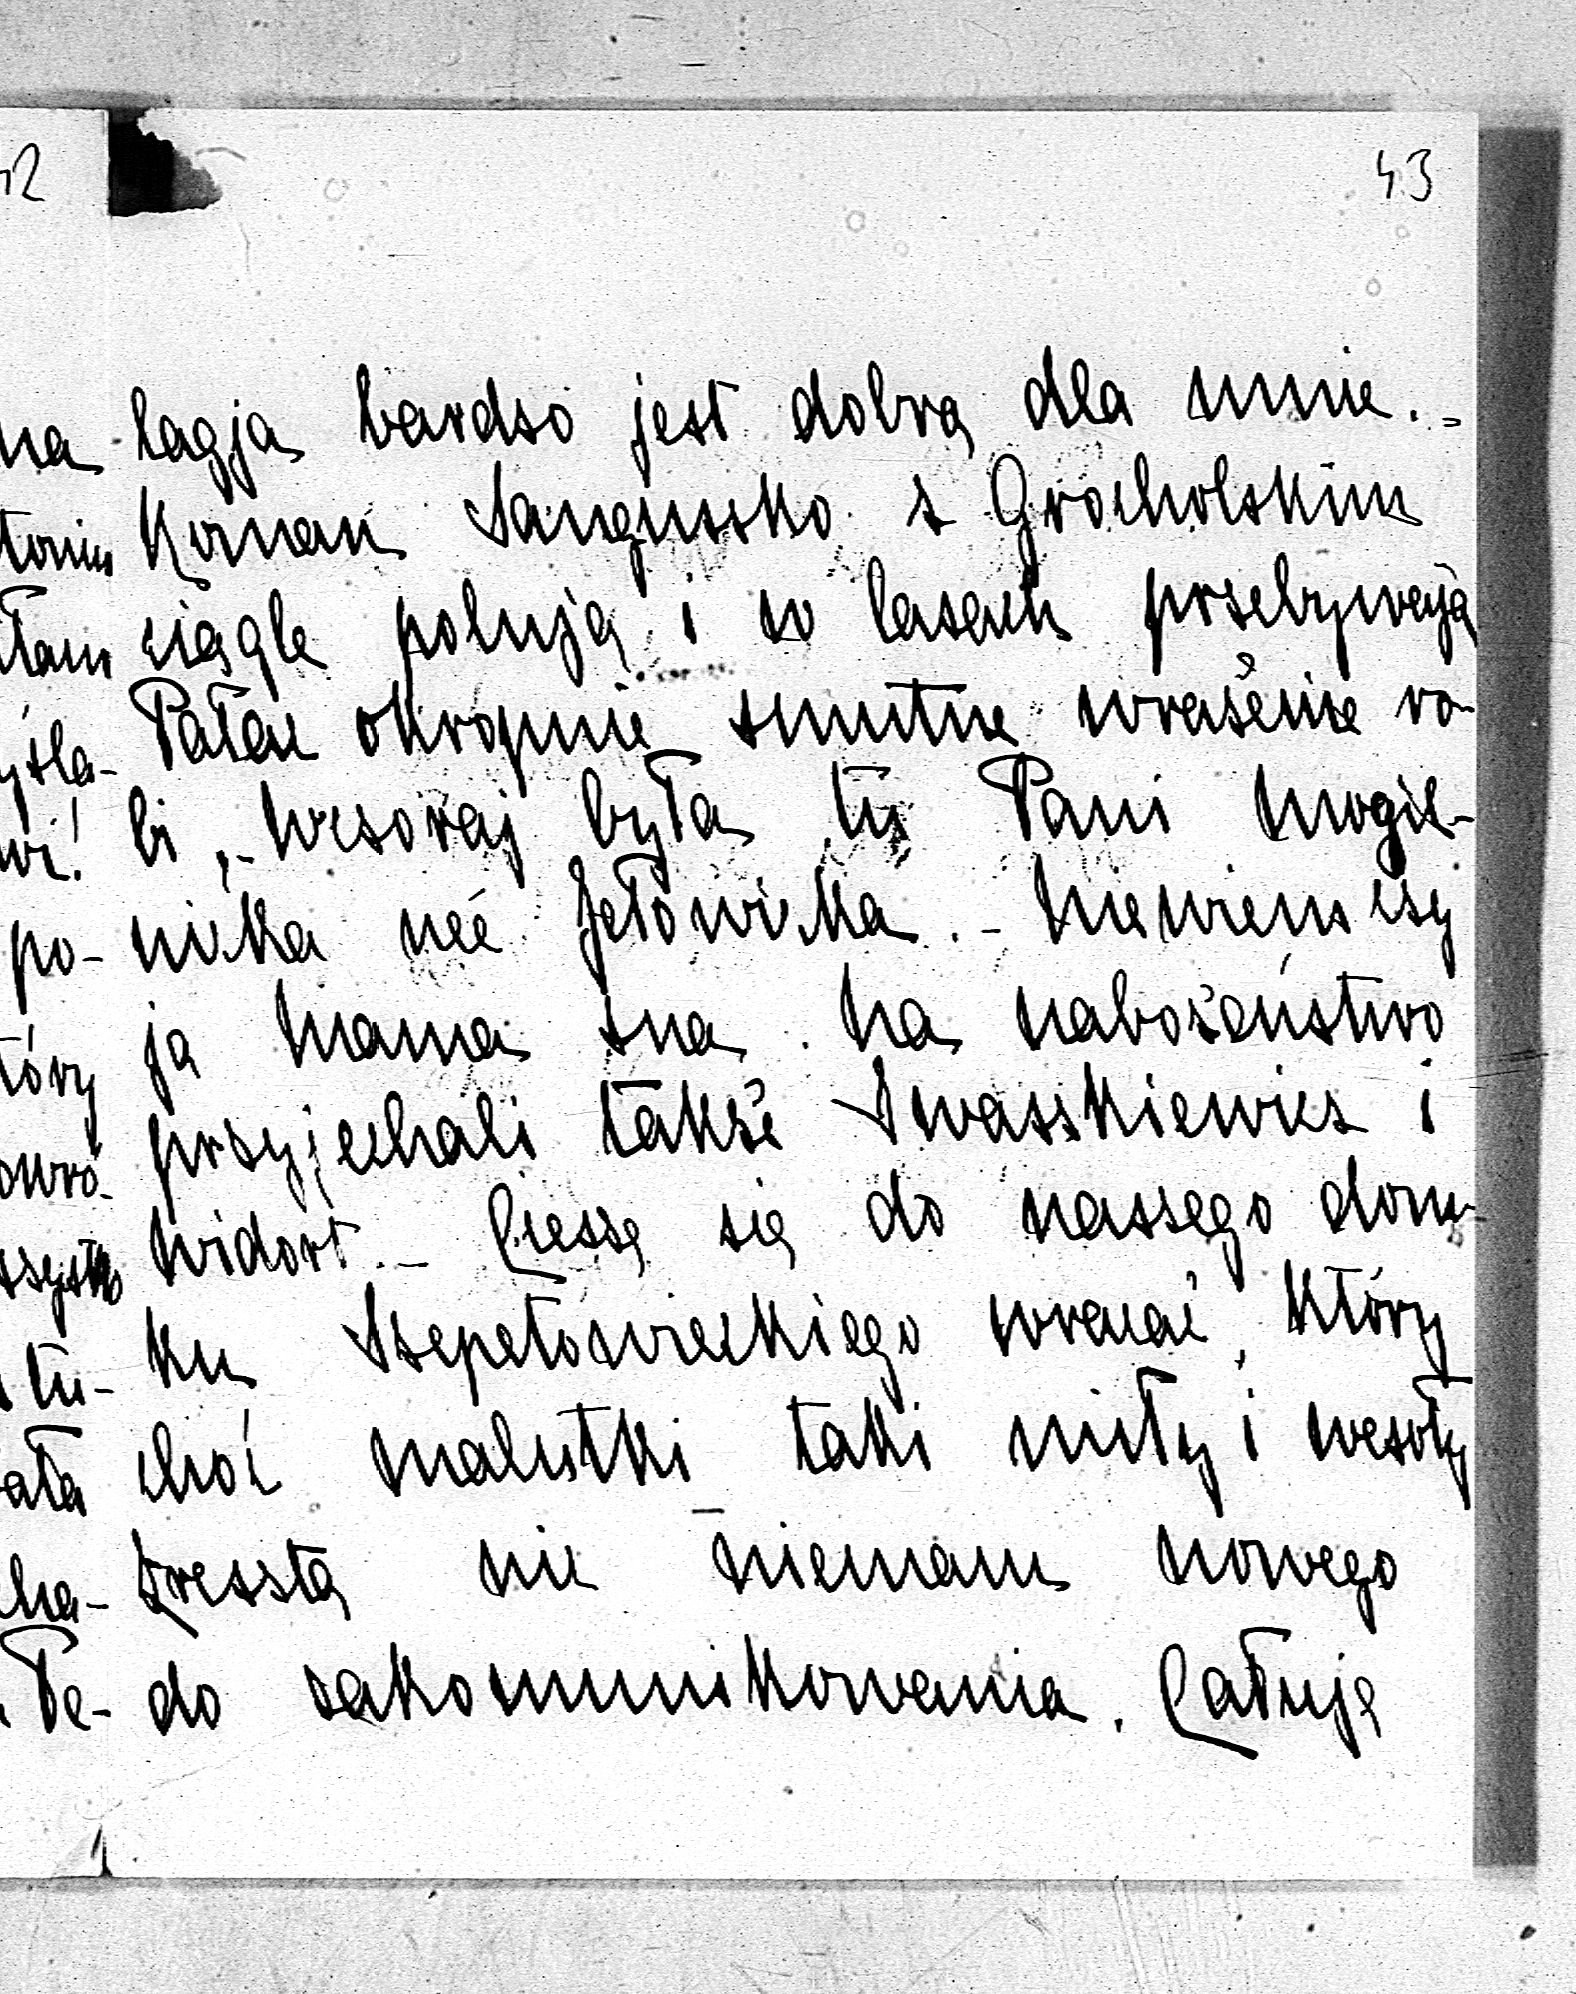 43
lagja bardzo jest dobrą dla mnie. -
Roman Sanguszko z Grocholskim
ciągle polują i w lasach przebywają
Pałac okropnie smutne wrażenie ro-
bi, - wczoraj była tu Pani Mogil-
nicka née Jełowicka. - Niewiem czy
ja Mama zna. Na nabożeństwo
przyjechali także Iwaszkiewicz i
Widort - Cieszę się do naszego dom-
ku Szepetowieckiego wracać, który
choć malutki taki miły i wesoły
Zresztą nic niemam nowego
do zakomunikowania. Całuję